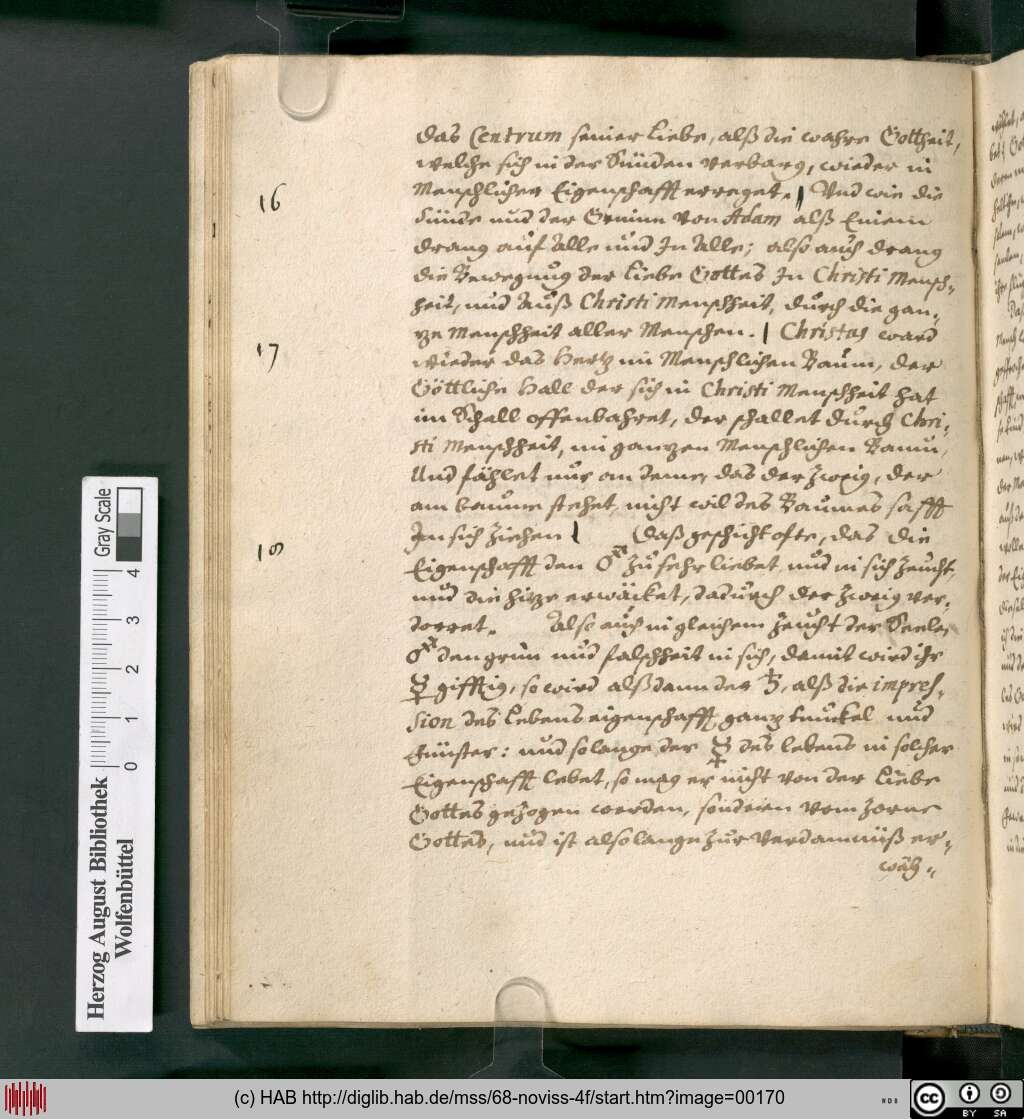 das Centrum seiner Liebe, alß die wahre Gottheit,
welche sich in der Sünden verbarg, wieder in
16
Menschlicher Eigenschafft erreget. | Und wie die
Sünde und der Grimm von Adam alß Einem
drang auf Alle und In Alle; also auch drang
die Bewegung der Liebe Gottes In Christi Mensch-
heit, und Auß Christi Menschheit, durch die gan-
17
tze Menschheit aller Menschen. | Christus ward
wieder das Hertz im Menschlichen Baum, der
Göttliche Hall der sich in Christi Menschheit hat
im Schall offenbahret, der schallet durch Chri-
sti Menschheit, im gantzen Menschlichen Baum,
Und fählet nur an deme, das der Zweig, der
am baume stehet, nicht wil des Baumes safft
18
In sich ziehen | Daß geschicht ofte, das die
Eigenschafft den ♂ zu sehr liebet, und in sich zeucht,
und die hitze erwäcket, dadurch der Zweig ver-
dorret. Also auch in gleichem zeucht der Seele
♂ den grim und falschheit in sich, damit wird ihr
☿ gifftig, so wird alßdann der ♄, alß die impres-
sion des Lebens eigenschafft gantz tunckel und
finster: und solange der ☿ des lebens in solcher
Eigenschafft lebet, so mag er nicht von der Liebe
Gottes gezogen werden, sondern vom Zorne
Gottes, und ist also lange zur Verdamnüß er-
wäh-
Herzog August Bibliothek
Wolfenbüttel
Gray Scale
0 1 2 3 4
(c) HAB http://diglib.hab.de/mss/68-noviss-4f/start.htm?image=00170
cc BY SA